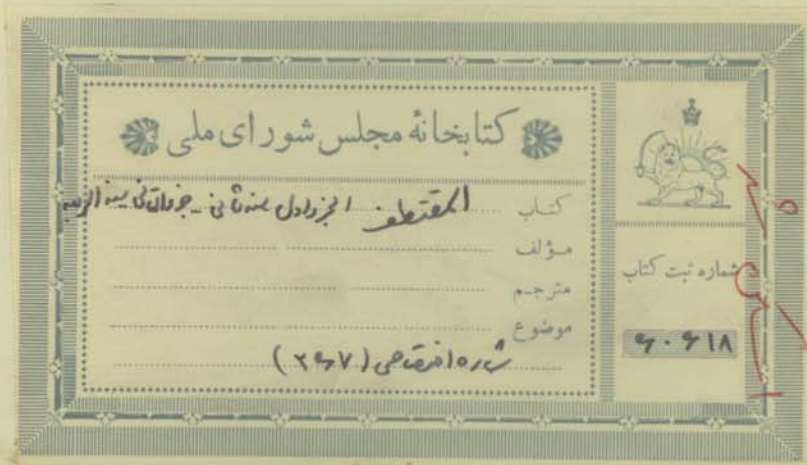 کتابخانهٔ مجلس شورای ملی
کتاب المقتطف الجزء الاول سنه ثانی - جزء الثانی سنه الرابعه
مؤلف
مترجم
موضوع
شماره اختصاصی ( ۲۶۷ )
شماره ثبت کتاب
۶۰۶۱۸